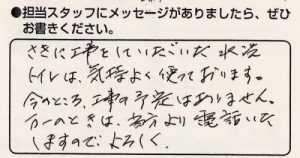 ●担当スタッフにメッセージがありましたら、ぜひ
お書きください。
さきに工事をしていただいた水洗
トイレは、気持よく使っております。
今のところ、工事の予定はありません。
万一のときは、当方より電話いた
しますので、よろしく.